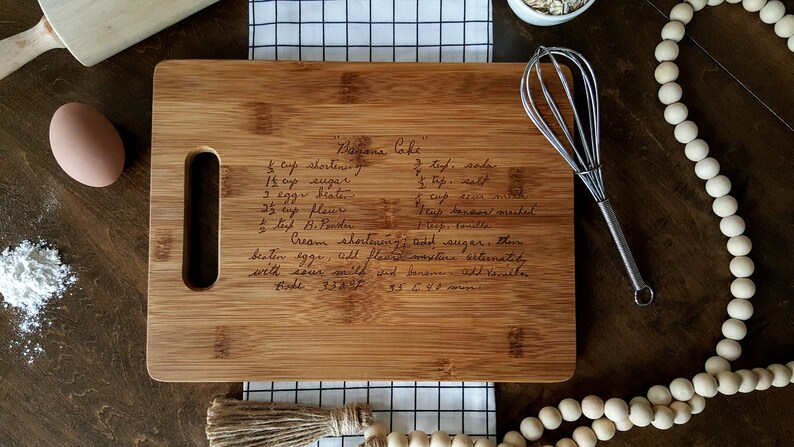 "Banana Cake"
½ cup shortening ¾ tsp. soda
1½ cup sugar ½ tsp. salt
2 eggs beaten ¼ cup sour milk
2½ cup flour 1 cup bananas mashed
½ tsp B. Powder 1 tsp. vanilla
Cream shortening; add sugar, then
beaten eggs, add flour mixture alternately
with sour milk and banana. Add vanilla.
Bake 350°F 35 to 40 min.